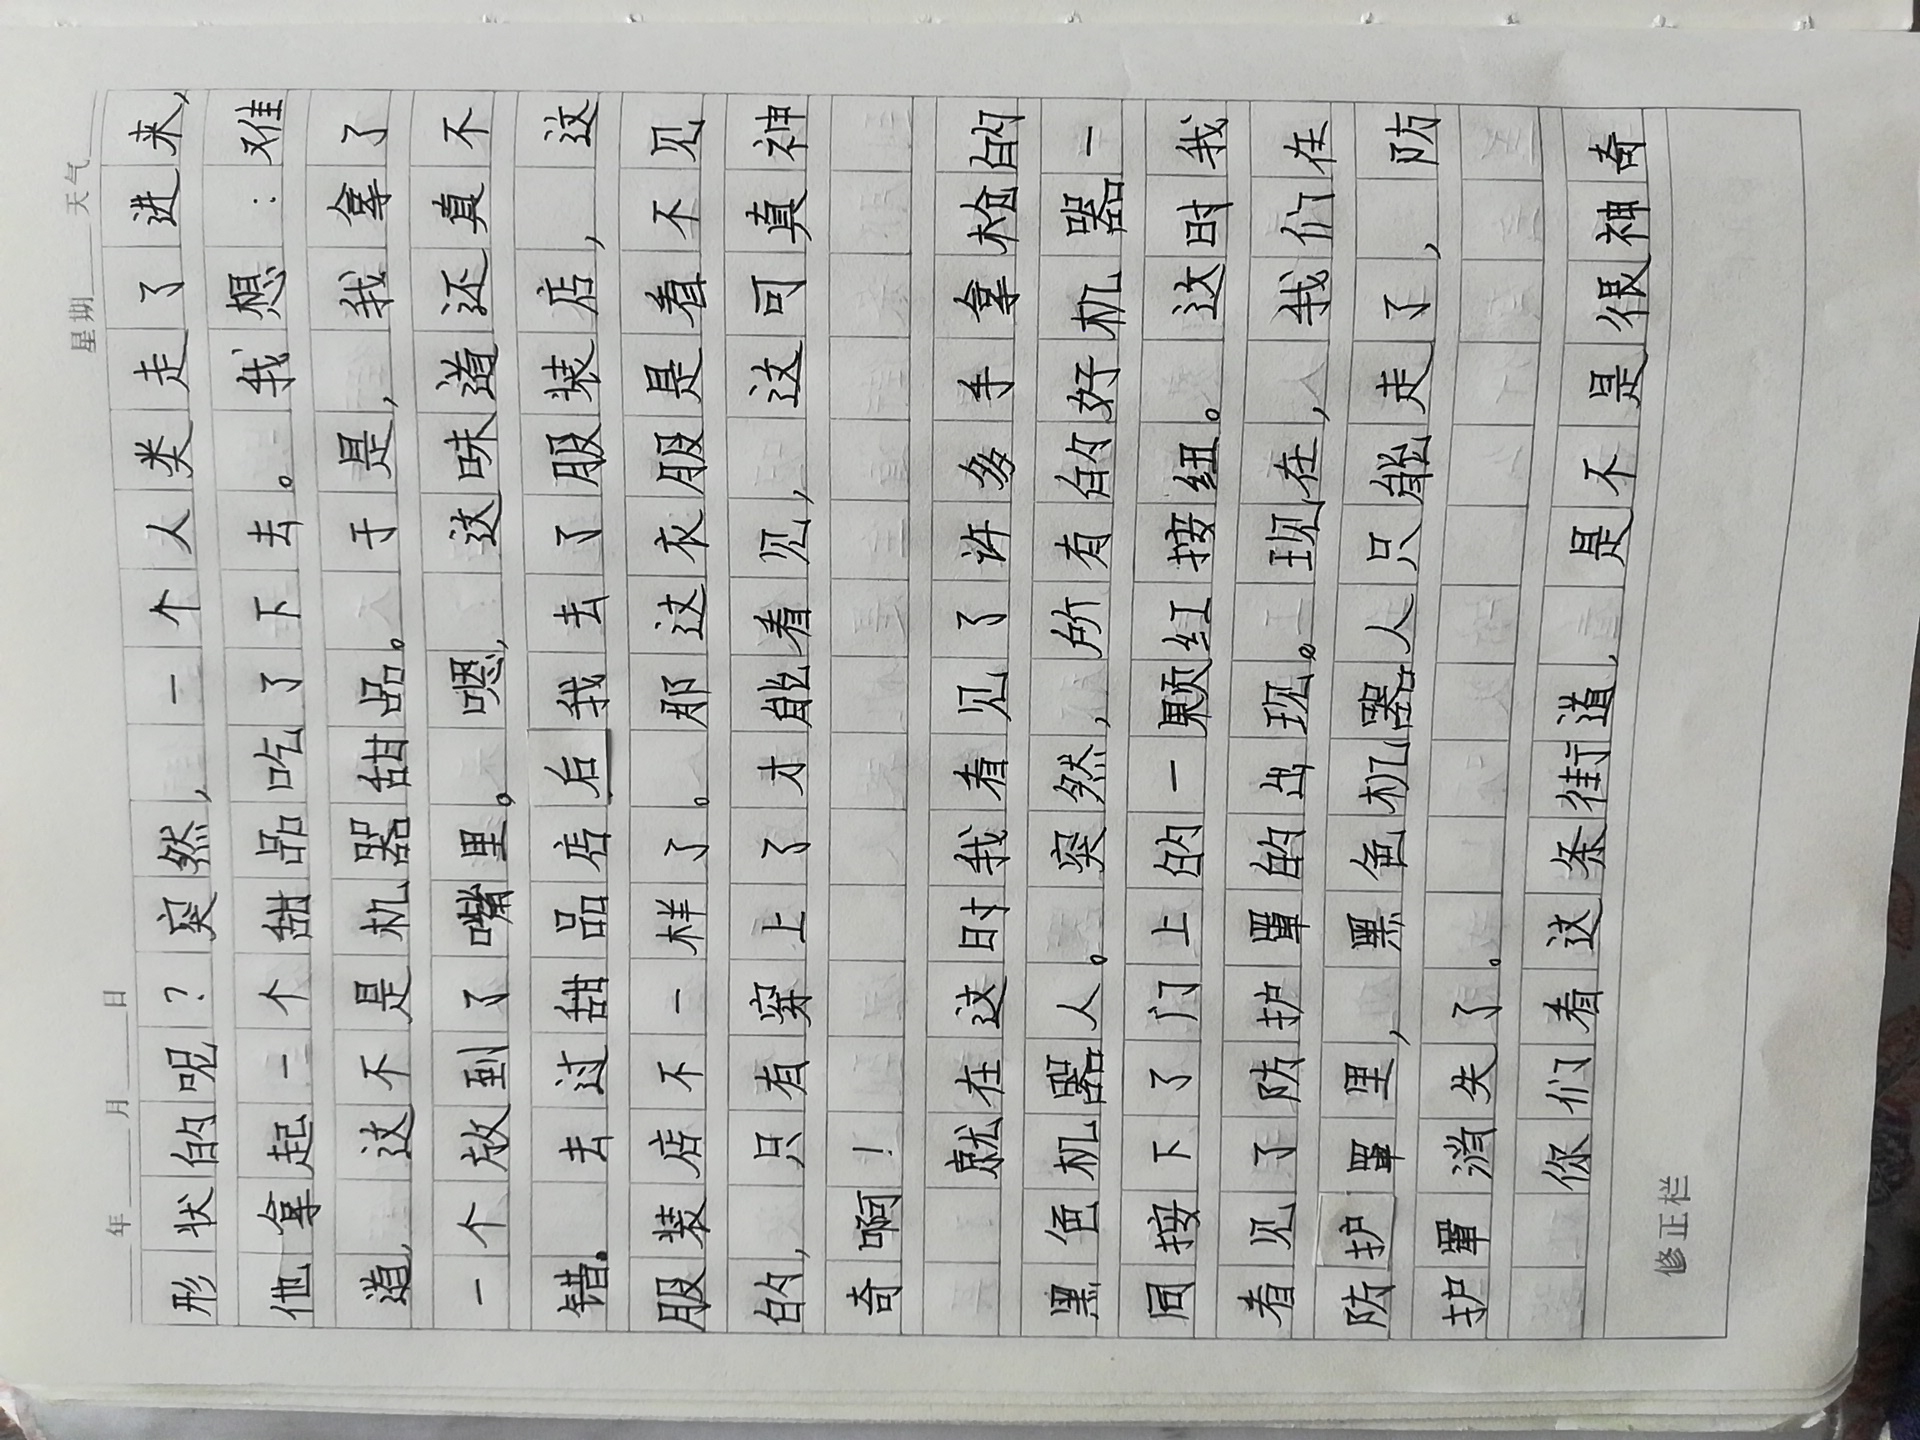 年 月 日 星期 天气
形状的呢?突然,一个人类走了进来,
他拿起一个甜品吃了下去。我想:难
道,这不是机器甜品。于是,我拿了
一个放到了嘴里。嗯,这味道还真不
错。去过甜品店后我去了服装店,这
服装店不一样了。那这衣服是看不见
的,只有穿上了才能看见,这可真神
奇啊!
就在这时我看见了许多手拿枪的
黑色机器人。突然,所有的好机器一
同按下了门上的一颗红按纽。这时我
看见了防护罩的出现。现在,我们在
防护罩里,黑色机器人只能走了,防
护罩消失了。
你们看这条街道,是不是很神奇
修正栏